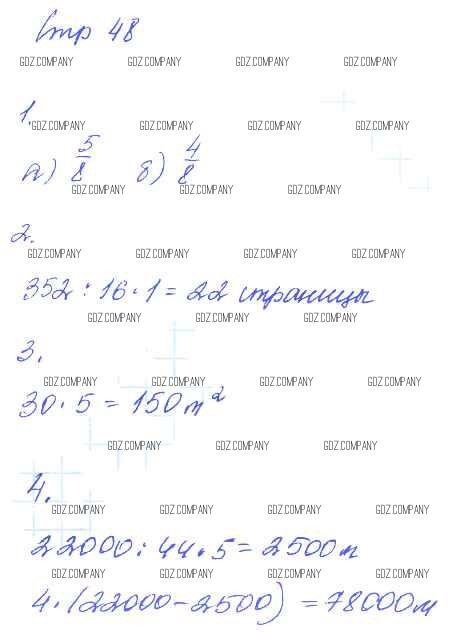 Стр 48
GDZ.COMPANY GDZ.COMPANY GDZ.COMPANY GDZ.COMPANY
1.
GDZ.COMPANY GDZ.COMPANY GDZ.COMPANY GDZ.COMPANY
а) 5/8 б) 4/8
GDZ.COMPANY GDZ.COMPANY GDZ.COMPANY
2.
GDZ.COMPANY GDZ.COMPANY GDZ.COMPANY GDZ.COMPANY
352 : 16 · 1 = 22 страницы
GDZ.COMPANY GDZ.COMPANY GDZ.COMPANY
3.
GDZ.COMPANY GDZ.COMPANY GDZ.COMPANY GDZ.COMPANY
30 · 5 = 150 м²
GDZ.COMPANY GDZ.COMPANY GDZ.COMPANY
4.
GDZ.COMPANY GDZ.COMPANY GDZ.COMPANY GDZ.COMPANY
22000 : 44 · 5 = 2500 м
GDZ.COMPANY GDZ.COMPANY GDZ.COMPANY GDZ.COMPANY
4 · (22000 - 2500) = 78000 м
GDZ.COMPANY GDZ.COMPANY GDZ.COMPANY